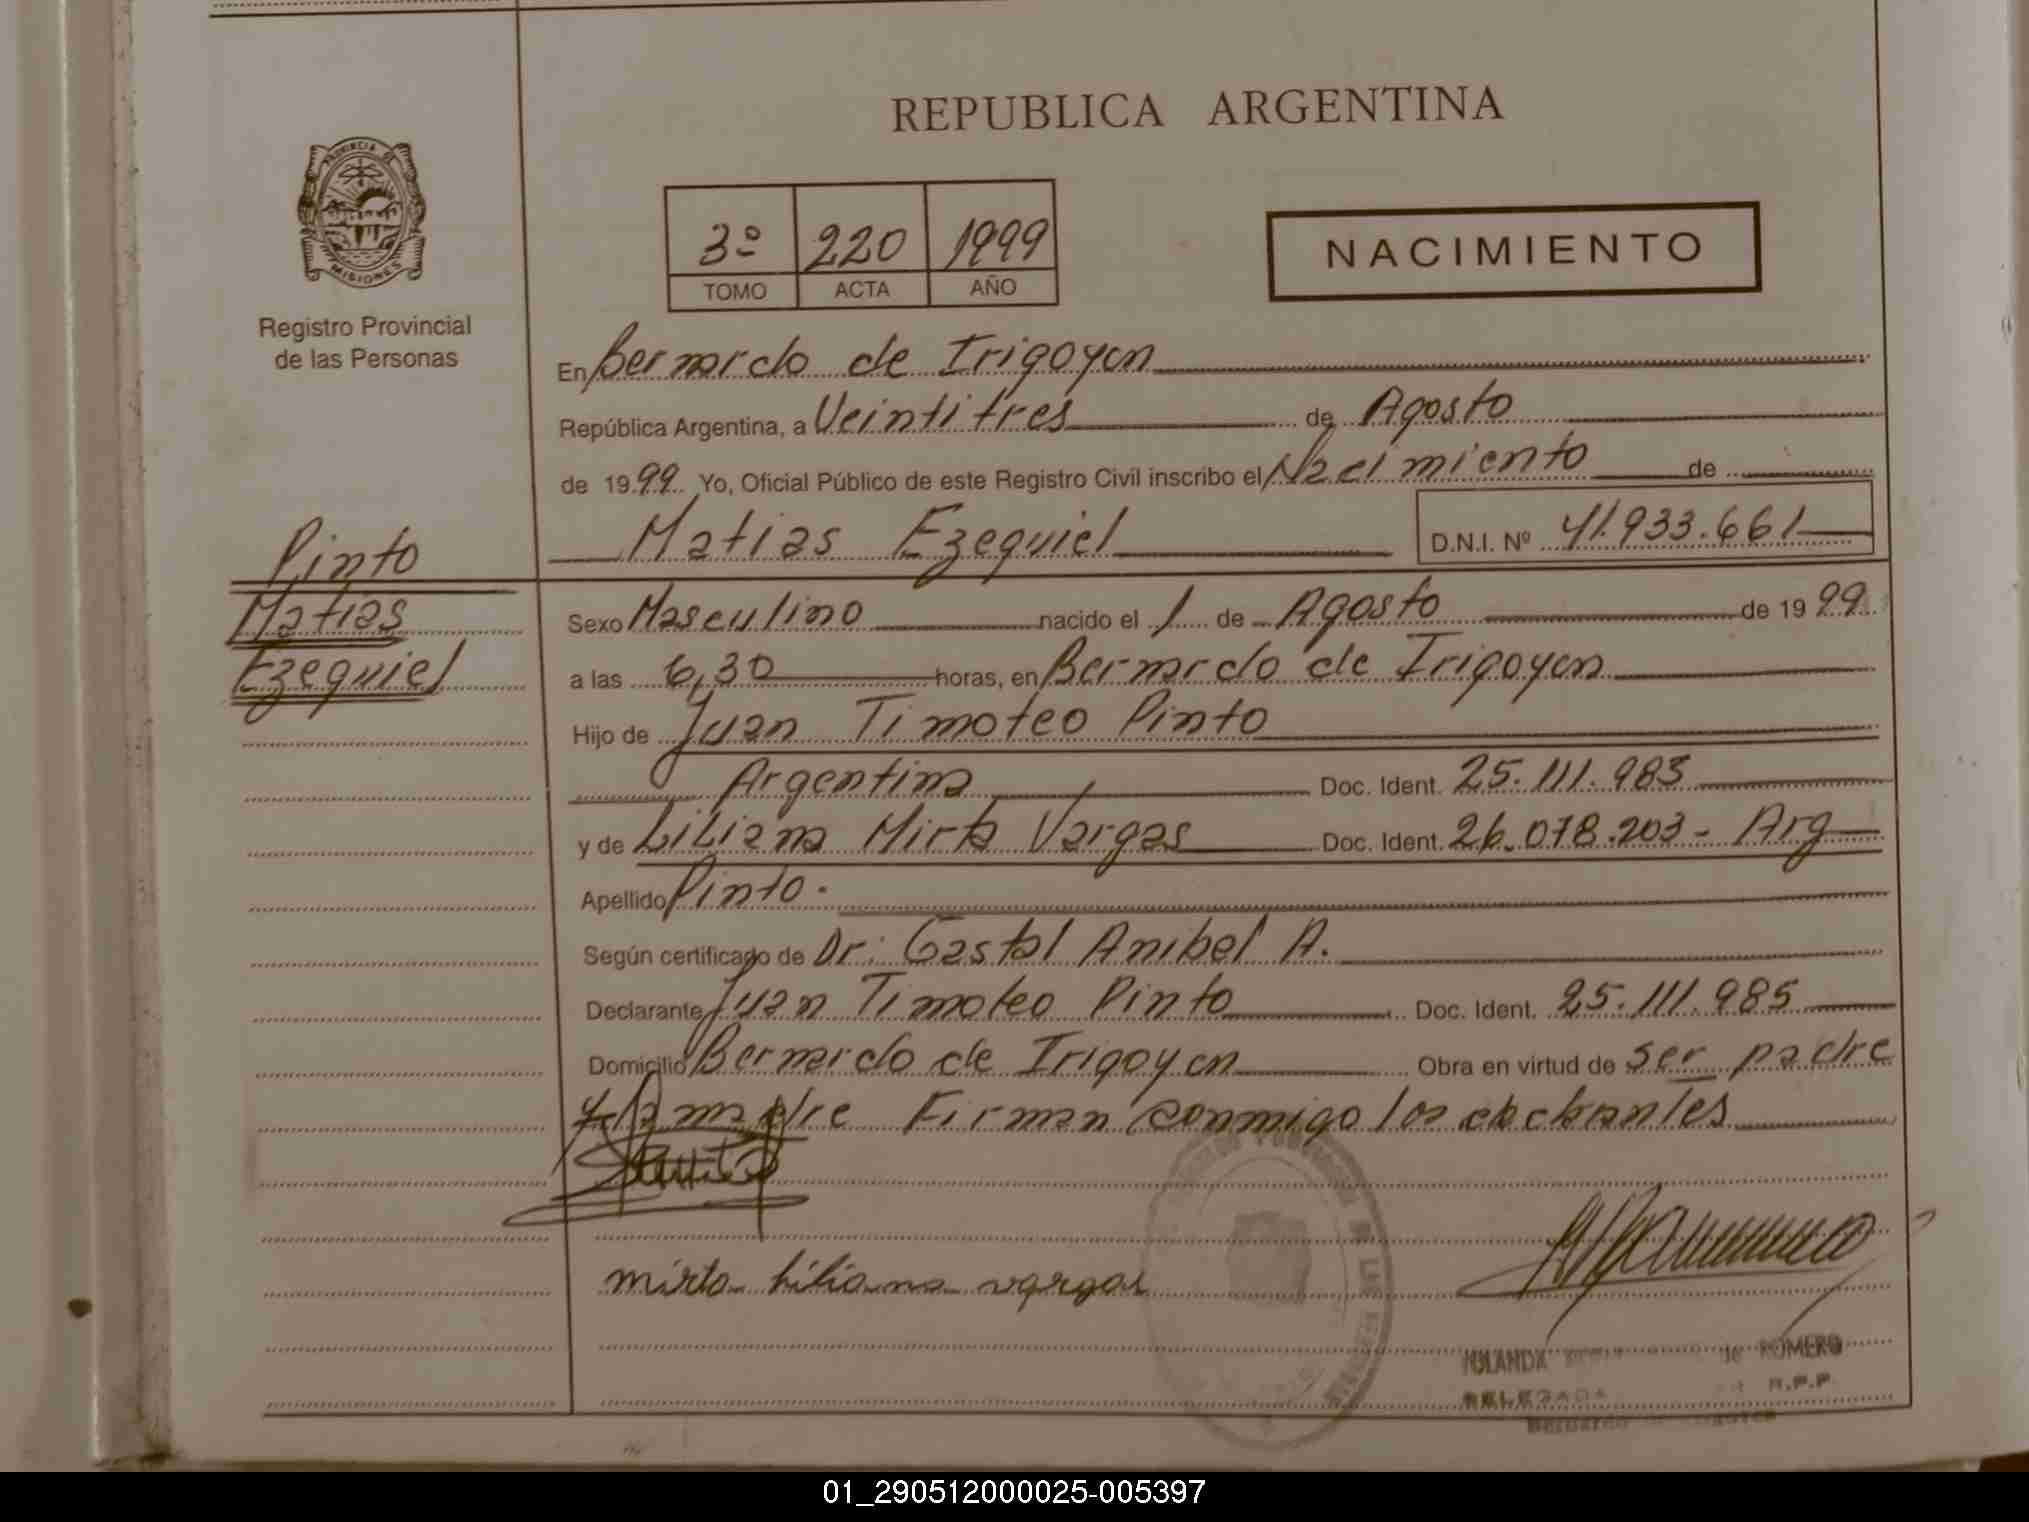 REPUBLICA ARGENTINA
PROVINCIA DE
MISIONES
Registro Provincial
de las Personas
3º 220 1999
TOMO ACTA AÑO
NACIMIENTO
En Bernardo de Irigoyen
República Argentina, a Veintitres de Agosto
de 1999 Yo, Oficial Público de este Registro Civil inscribo el Nacimiento de
Matias Ezequiel D.N.I. Nº 41.933.661
Pinto
Matias
Ezequiel
Sexo Masculino nacido el 1 de Agosto de 1999
a las 6,30 horas, en Bernardo de Irigoyen
Hijo de Juan Timoteo Pinto
Argentina Doc. Ident. 25.111.985
y de Liliana Mirta Vargas Doc. Ident. 26.078.203- Arg
Apellido Pinto.
Según certificado de Dr: Gastal Anibel A.
Declarante Juan Timoteo Pinto Doc. Ident. 25.111.985
Domicilio Bernardo de Irigoyen Obra en virtud de ser padre
y la madre Firman conmigo los declarantes
mirta liliana vargas
YOLANDA de ROMERO
DELEGADA R.P.P.
Bernardo de Irigoyen
01_290512000025-005397